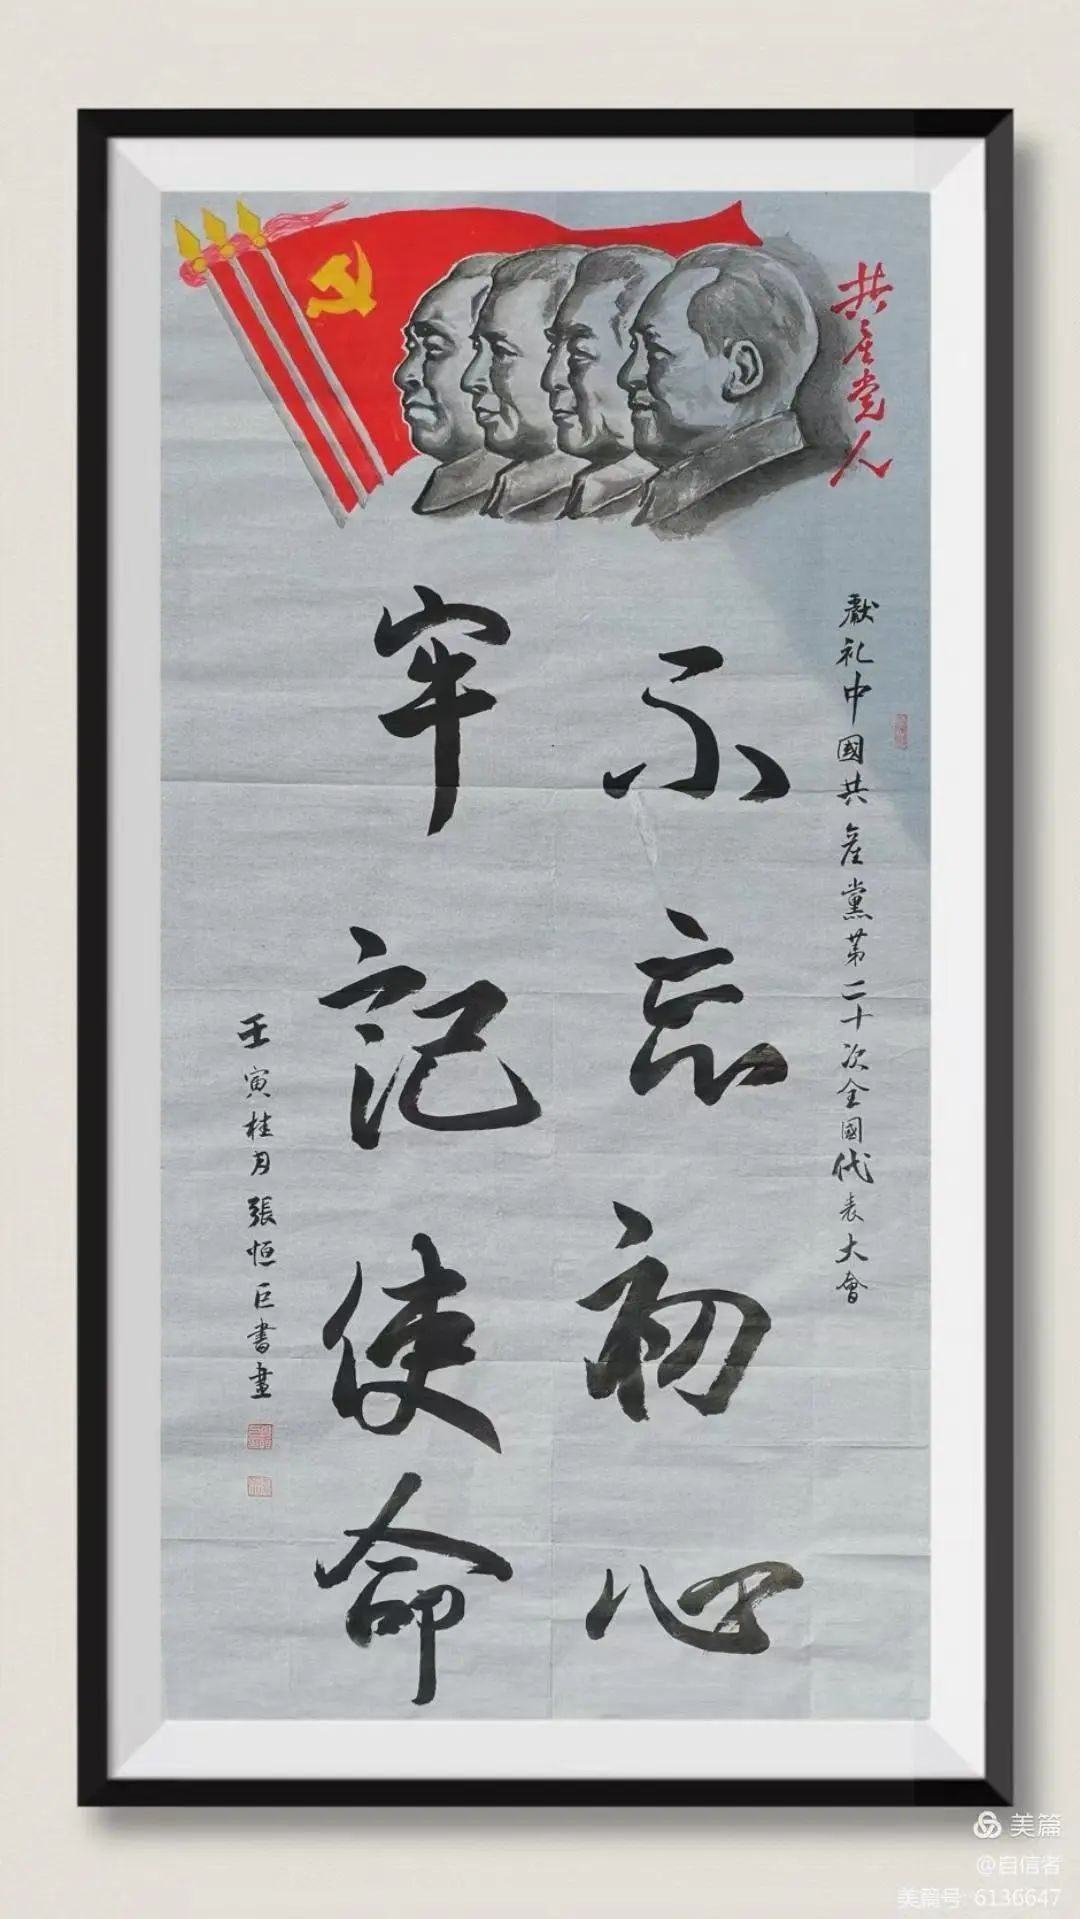 共产党人
獻礼中國共產黨第二十次全國代表大會
不忘初心
牢记使命
壬寅桂月張恒巨書畫
美篇
@自信者
美篇号: 6136647